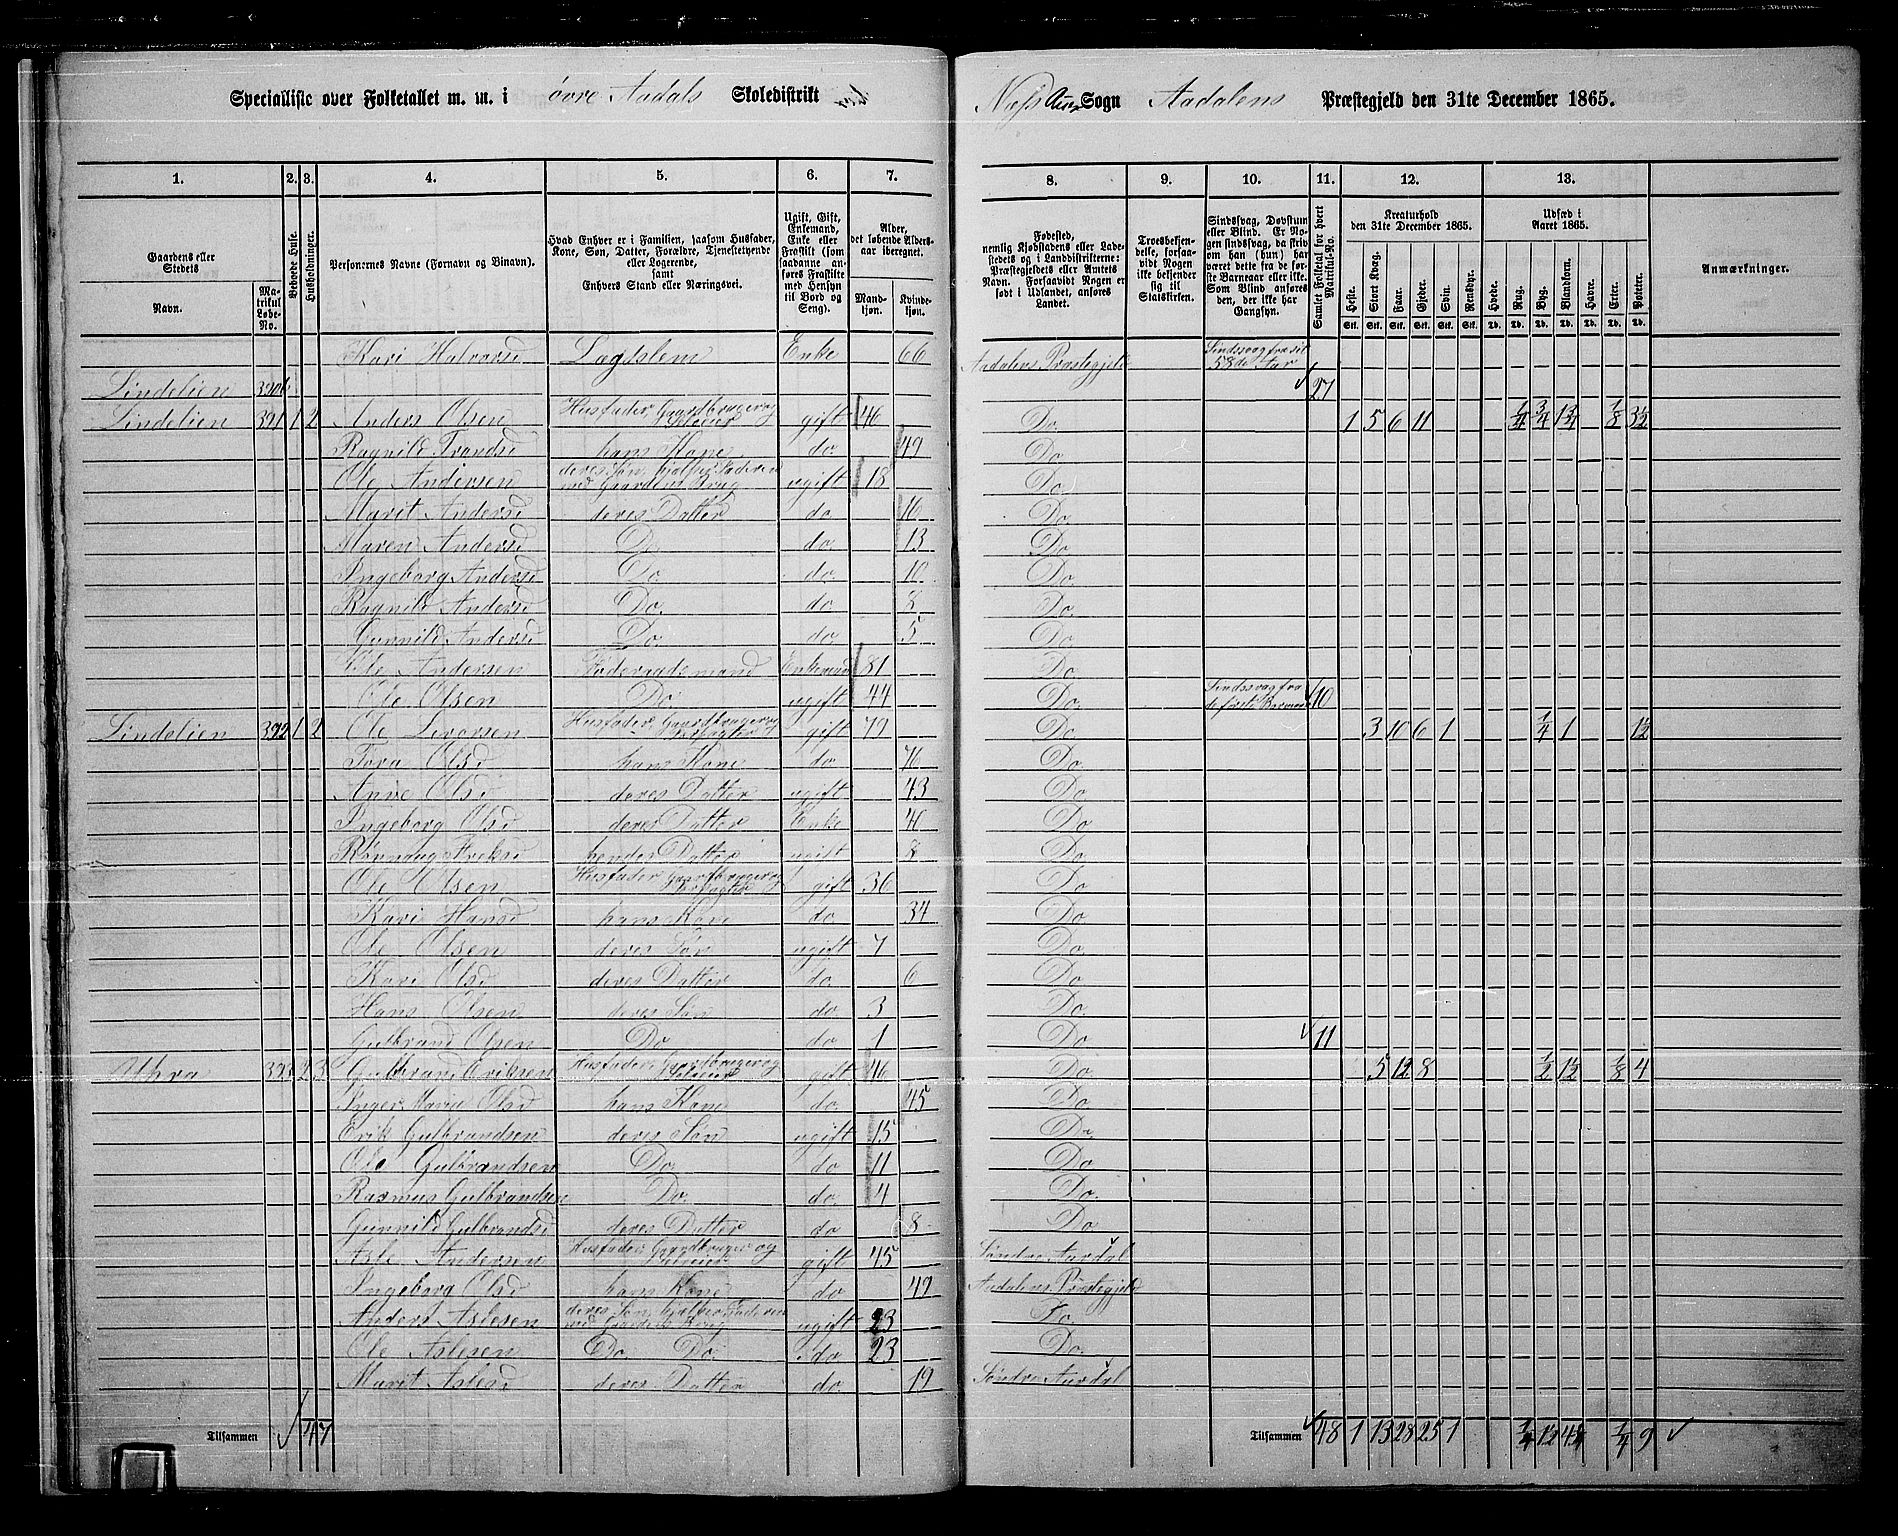 Specialliste over Folketallet m. m. i øvre Aadals Skoledistrikt
Sogn Aadalens Præstegjeld den 31te December 1865.
1. 2. 3. 4. 5. 6. 7. 8. 9. 10. 11. 12. 13.
Gaardens eller Stedets
Navn.
Matrikul Løbe-No.
Beboede Huse.
Husholdninger.
Personernes Navne (Fornavn og Binavn).
Hvad Enhver er i Familien, saasom Husfader, Kone, Søn, Datter, Forældre, Tjenestetyende eller Logerende, samt Enhvers Stand eller Næringsvei.
Ugift, Gift, Enkemand, Enke eller Fraskilt (som saadanne anføres Fraskilte med Hensyn til Bord og Seng).
Alder, det løbende Aldersaar iberegnet.
Mandkjøn.
Kvindekjøn.
Fødested, nemlig Kjøbstadens eller Ladestedets og i Landdistrikterne: Præstegjeldets eller Amtets Navn. Forsaavidt Nogen er født i Udlandet, anføres Landet.
Troesbekjendelse, forsaavidt Nogen ikke bekjender sig til Statskirken.
Sindssvag, Døvstum eller Blind. Er Nogen sindssvag, da skriv om han (hun) har været dette fra de første Barneaar eller ikke. Som Blind anføres den, der ikke har Gangsyn.
Samlet Folketal for hvert Matrikul-No.
Kreaturhold den 31te December 1865.
Heste. Stort Kvæg. Faar. Gjeder. Svin. Rensdyr.
Udsæd i Aaret 1865.
Hvede. Rug. Byg. Blandkorn. Havre. Erter. Poteter.
Anmærkninger.
Kari Halvorsd Lægdslem Enke 66 Aadalens Præstegjeld Sindssvag fra sit 58de Aar
Lindelien 27
Lindelien 391 1 2 Anders Olsen Husfader, Gaardbruger og Selveier gift 46 Do 1 5 6 11 1/4 3/4 1 3/4 1/8 3 1/2
Ragnild Trondsd hans Kone do 49 Do
Ole Andersen deres Søn, hjælper Faderen med Gaardens Brug ugift 18 Do
Marit Andersd deres Datter do 16 Do
Maren Andersd Do do 13 Do
Ingeborg Andersd Do do 10 Do
Ragnild Andersd Do do 8 Do
Gunnild Andersd Do do 5 Do
Ole Andersen Føderaadsmand Enkemand 81 Do
Ole Olsen Do ugift 44 Do Sindssvag fra de første Barneaar 10
Lindelien 392 1 2 Ole Iversen Husfader, Gaardbruger og gift 79 Do 3 10 6 1 1/4 1 1 1/2
Tora Olsd hans Kone do 76 Do
Anne Olsd deres Datter ugift 43 Do
Ingeborg Olsd deres Datter Enke 40 Do
Rønnaug Eriksd hendes Datter ugift 8 Do
Ole Olsen Husfader, Gaardbruger og gift 36 Do
Kari Hansd hans Kone do 34 Do
Ole Olsen deres Søn ugift 7 Do
Kari Olsd deres Datter do 6 Do
Hans Olsen deres Søn do 3 Do
Gulbrand Olsen Do do 1 Do 11
393 2 3 Gulbrand Eriksen Husfader, Gaardbruger og Selveier gift 46 Do 5 12 8 1/2 1 1/2 1/8 4
Inger Marie Olsd hans Kone do 45 Do
Erik Gulbrandsen deres Søn ugift 15 Do
Ole Gulbrandsen Do do 11 Do
Rasmus Gulbrandsen Do do 4 Do
Gunnild Gulbrandsd deres Datter do 8 Do
Asle Andersen Husfader Gaardbruger og Selveier gift 45 Søndre Aurdal
Ingeborg Olsd hans Kone do 49 Aadalens Præstegjeld
Anders Aslesen deres Søn, hjælper Faderen med Gaardens Brug ugift 23 Do
Ole Aslesen Do Do do 23 Do
Marit Aslesd deres Datter do 19 Søndre Aurdal
Tilsammen 4 7
Tilsammen 48 1 13 28 25 1 1/4 1/4 9